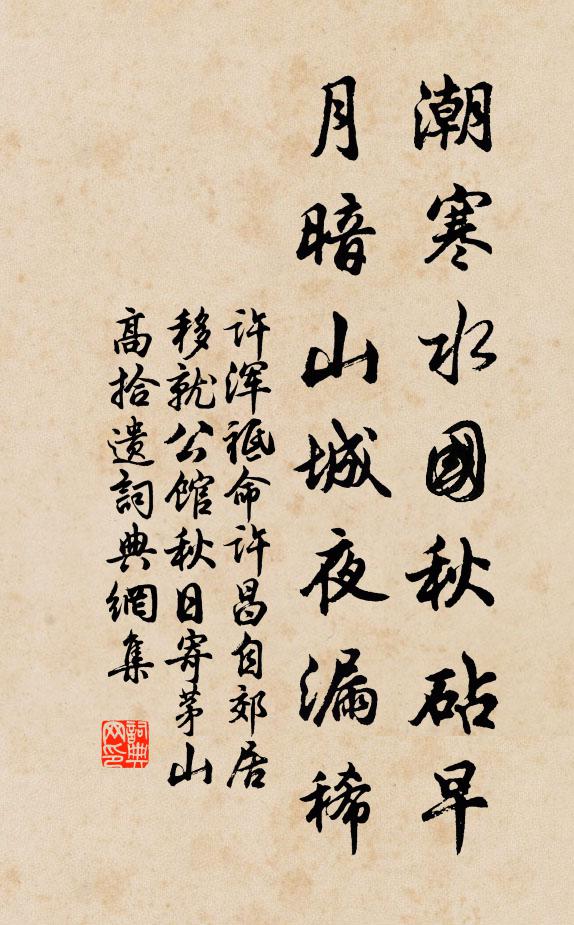 潮寒水國秋砧早
月暗山城夜漏稀
许浑祗命许昌自郊居
移就公馆秋日寄茅山
高拾遗詞典網集
詞典
网印